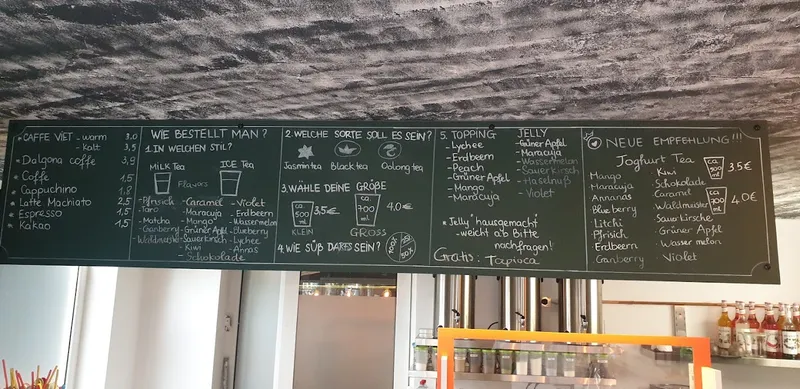 CAFFE VIET - warm 3,0
- kalt 3,5
Dalgona coffe 3,9
Coffe 1,5
Cappuchino 1,8
Latte Machiato 2,5
Espresso 1,5
Kakao 1,5
WIE BESTELLT MAN?
1. IN WELCHEN STIL?
MILK TEA ICE TEA
Flavors
- Pfrisich - Caramel - Violet
- Taro - Maracuja - Erdbeern
- Matcha - Mango - Wassermelon
- Canberry - Grüner Apfel - Blueberry
- Waldmeister - Sauerkirsch - Lychee
- Kiwi - Annas
- Schokolade
2. WELCHE SORTE SOLL ES SEIN?
Jasmin tea Black tea Oolong tea
3. WÄHLE DEINE GRÖßE
ca. 500 ml 3,5€ ca. 700 ml 4.0€
KLEIN GROSS
4. WIE SÜß DARFS SEIN?
5. TOPPING
- Lychee
- Erdbeern
- Peach
- Grüner Apfel
- Mango
- Maracuja
JELLY
- Grüner Apfel
- Maracuja
- Wassermelon
- Sauerkirsch
- Haselnuß
- Violet
* Jelly "hausgemacht"
- weicht ab Bitte
nachfragen!
Gratis: Tapioca
NEUE EMPFEHLUNG!!!
Joghurt Tea
Mango
Maracuja
Annanas
Blueberry
Litchi
Pfrisich
Erdbeern
Canberry
Kiwi
Schokolade
Caramel
Waldmeister
Sauerkirsche
Grüner Apfel
Wassermelon
Violet
ca. 500 ml 3.5€
ca. 700 ml 4.0€